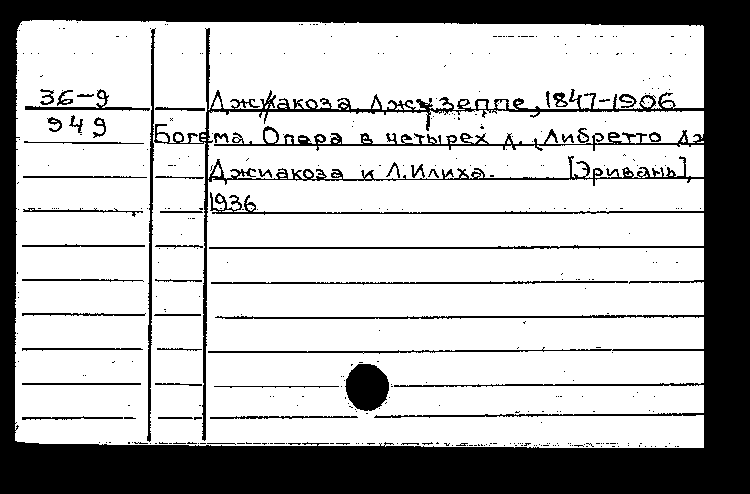 36-9 Джакоза, Джузеппе, 1847-1906
949 Богема. Опера в четырех д. Либретто Дж
Джиакоза и Л. Илиха. [Эривань],
1936